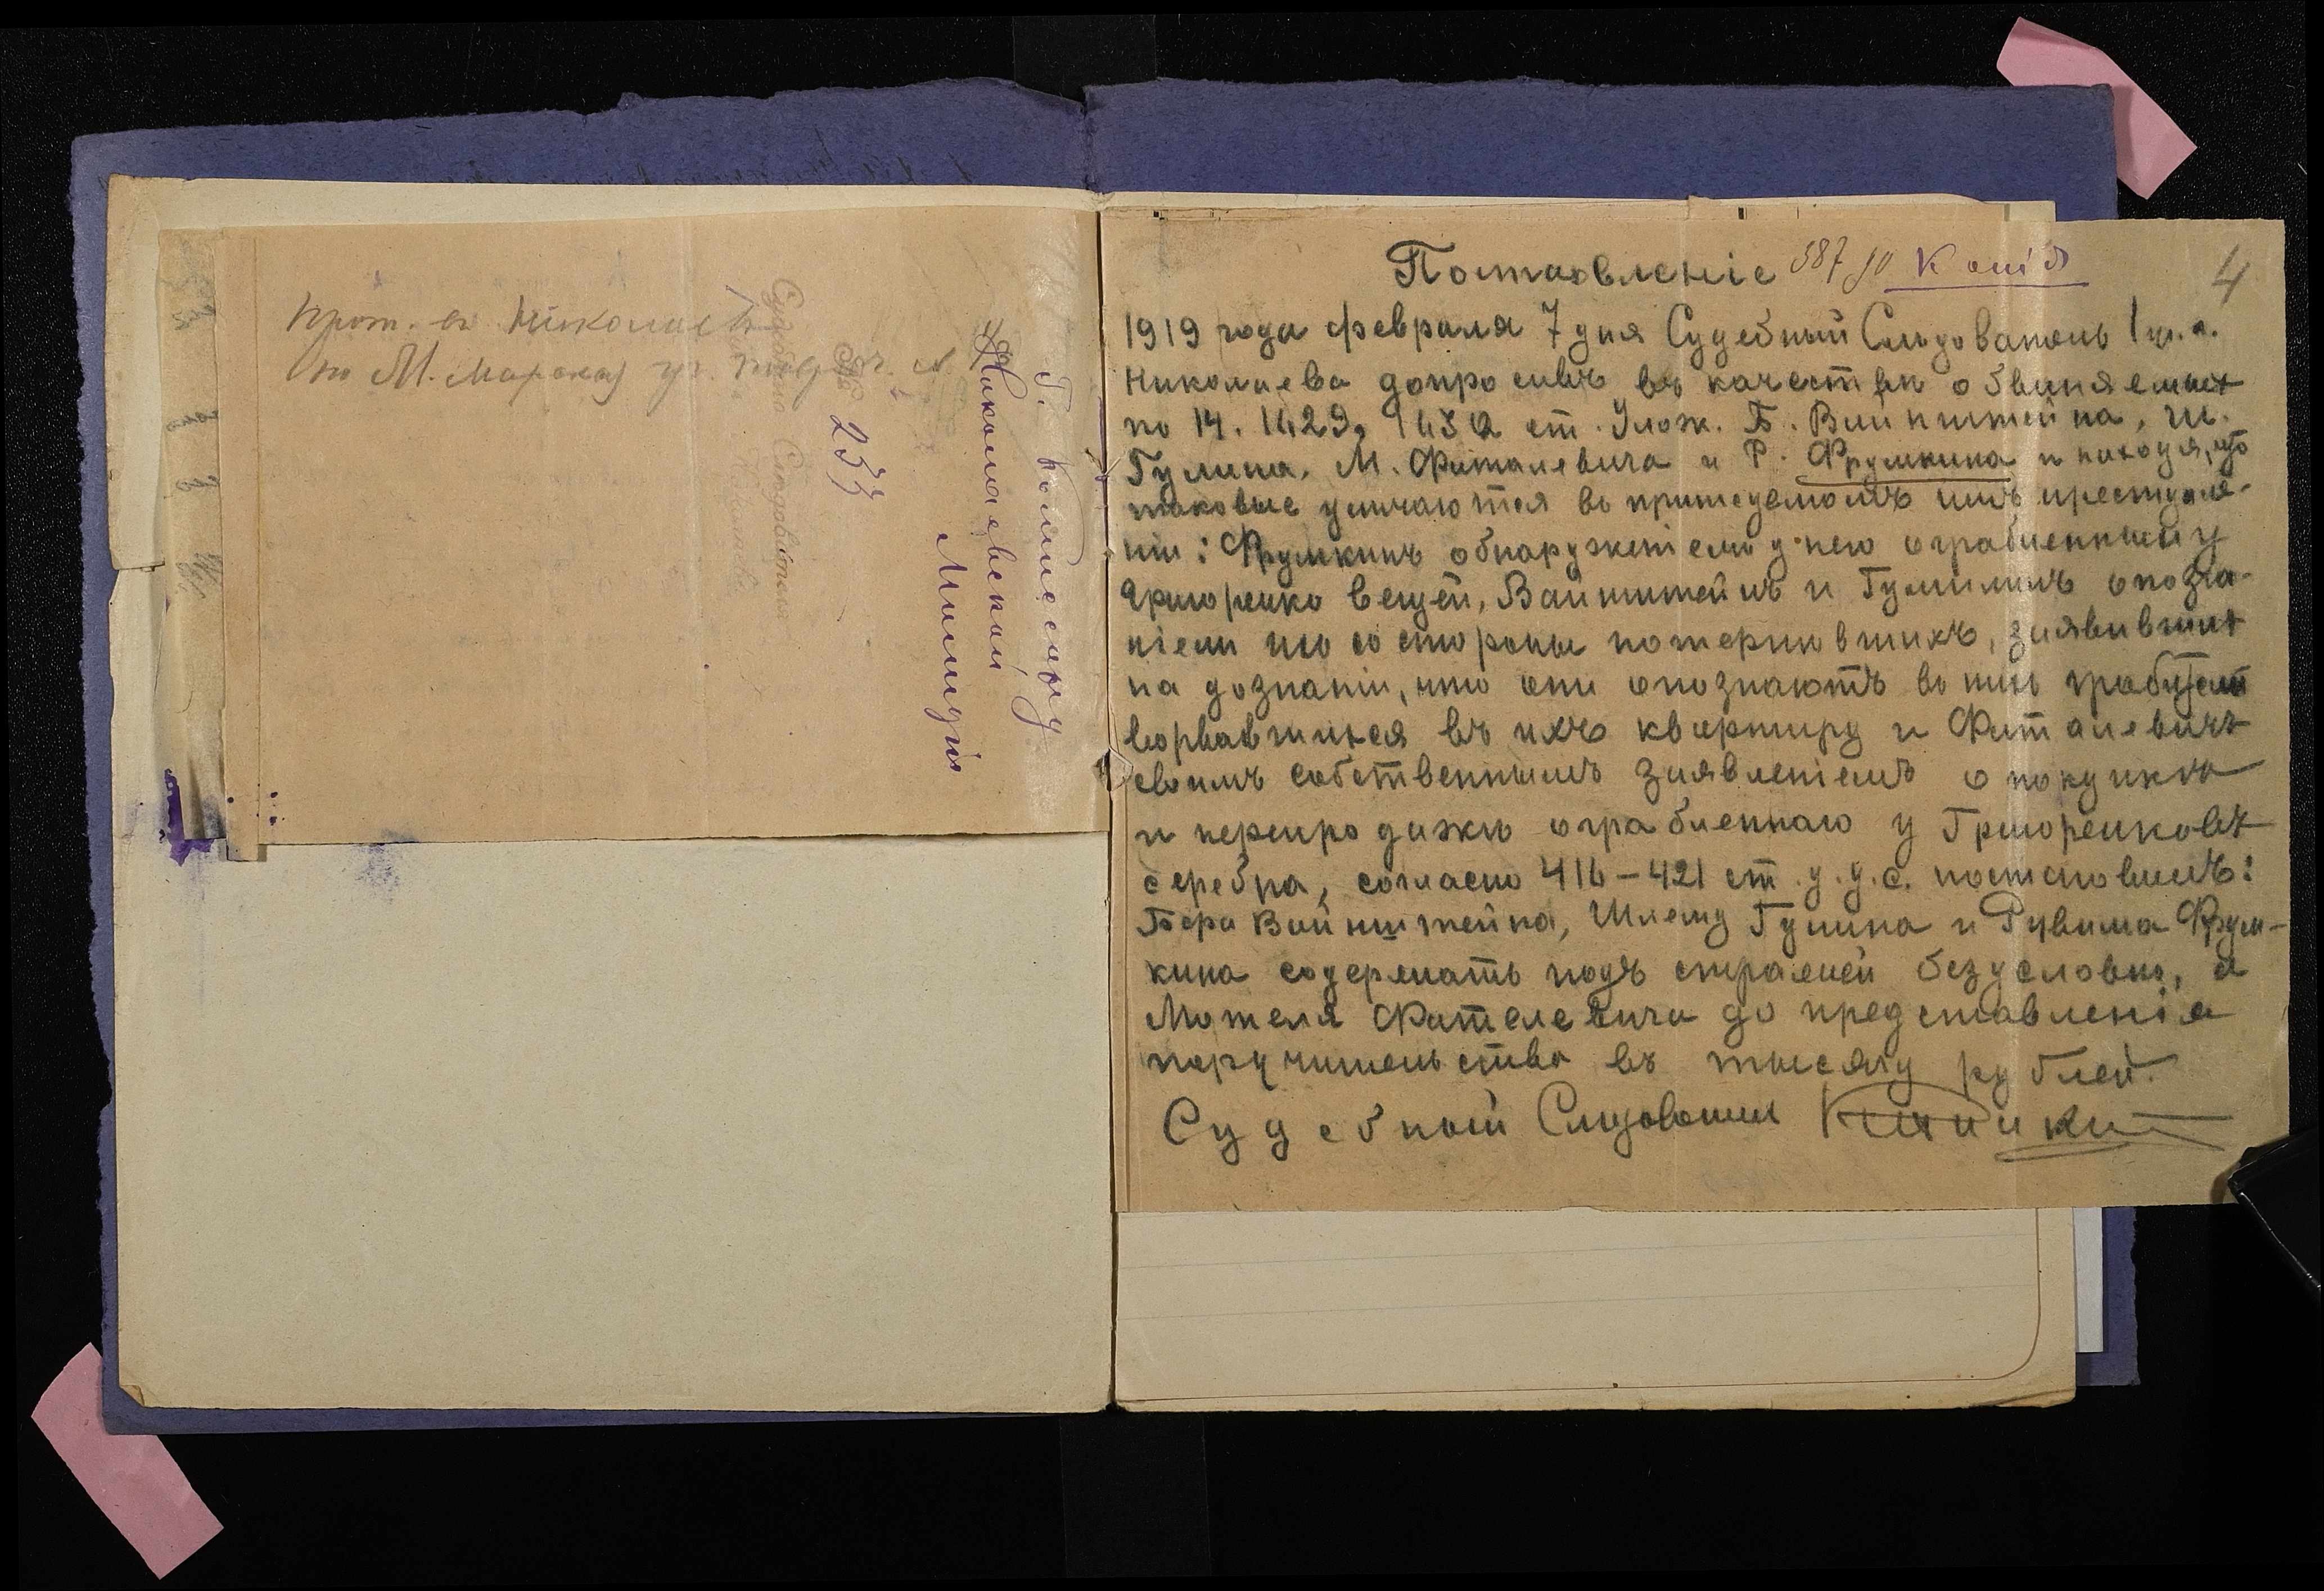 Прот. въ Николаевъ
по М. Морской ул.
233
Г. Комиссару
Николаевской
Милиціи
Постановленіе 387 Копія
4
1919 года февраля 7 дня Судебный Следователь 1 уч. г.
Николаева допросивъ въ качестве обвиняемыхъ
по 14. 1629, 1632 ст. Улож. Б. Вайнштейна, Ш.
Гулина, М. Фиталевича и Р. Фрумкина и находя, что
таковые уличаются во приписуемомъ имъ преступле-
ніи: Фрумкинъ обнаруженіемъ у него ограбленныхъ у
Григоренко вещей, Вайнштейнъ и Гулинымъ опозна-
ніемъ ихъ со стороны потерпевшихъ, заявившихъ
на дознаніи, что они опознаютъ въ нихъ грабителей
ворвавшихся въ ихъ квартиру и Фиталевичъ
своимъ собственнымъ заявленіемъ о покупке
и перепродаже ограбленнаго у Григоренковъ
серебра, согласно 416-421 ст. у.у.с. постановилъ:
Бера Вайнштейна, Шлему Гулина и Рувима Фрум-
кина содержать подъ стражей безусловно, а
Мотеля Фителевича до представленія
поручительства въ тысячу рублей.
Судебный Следователь